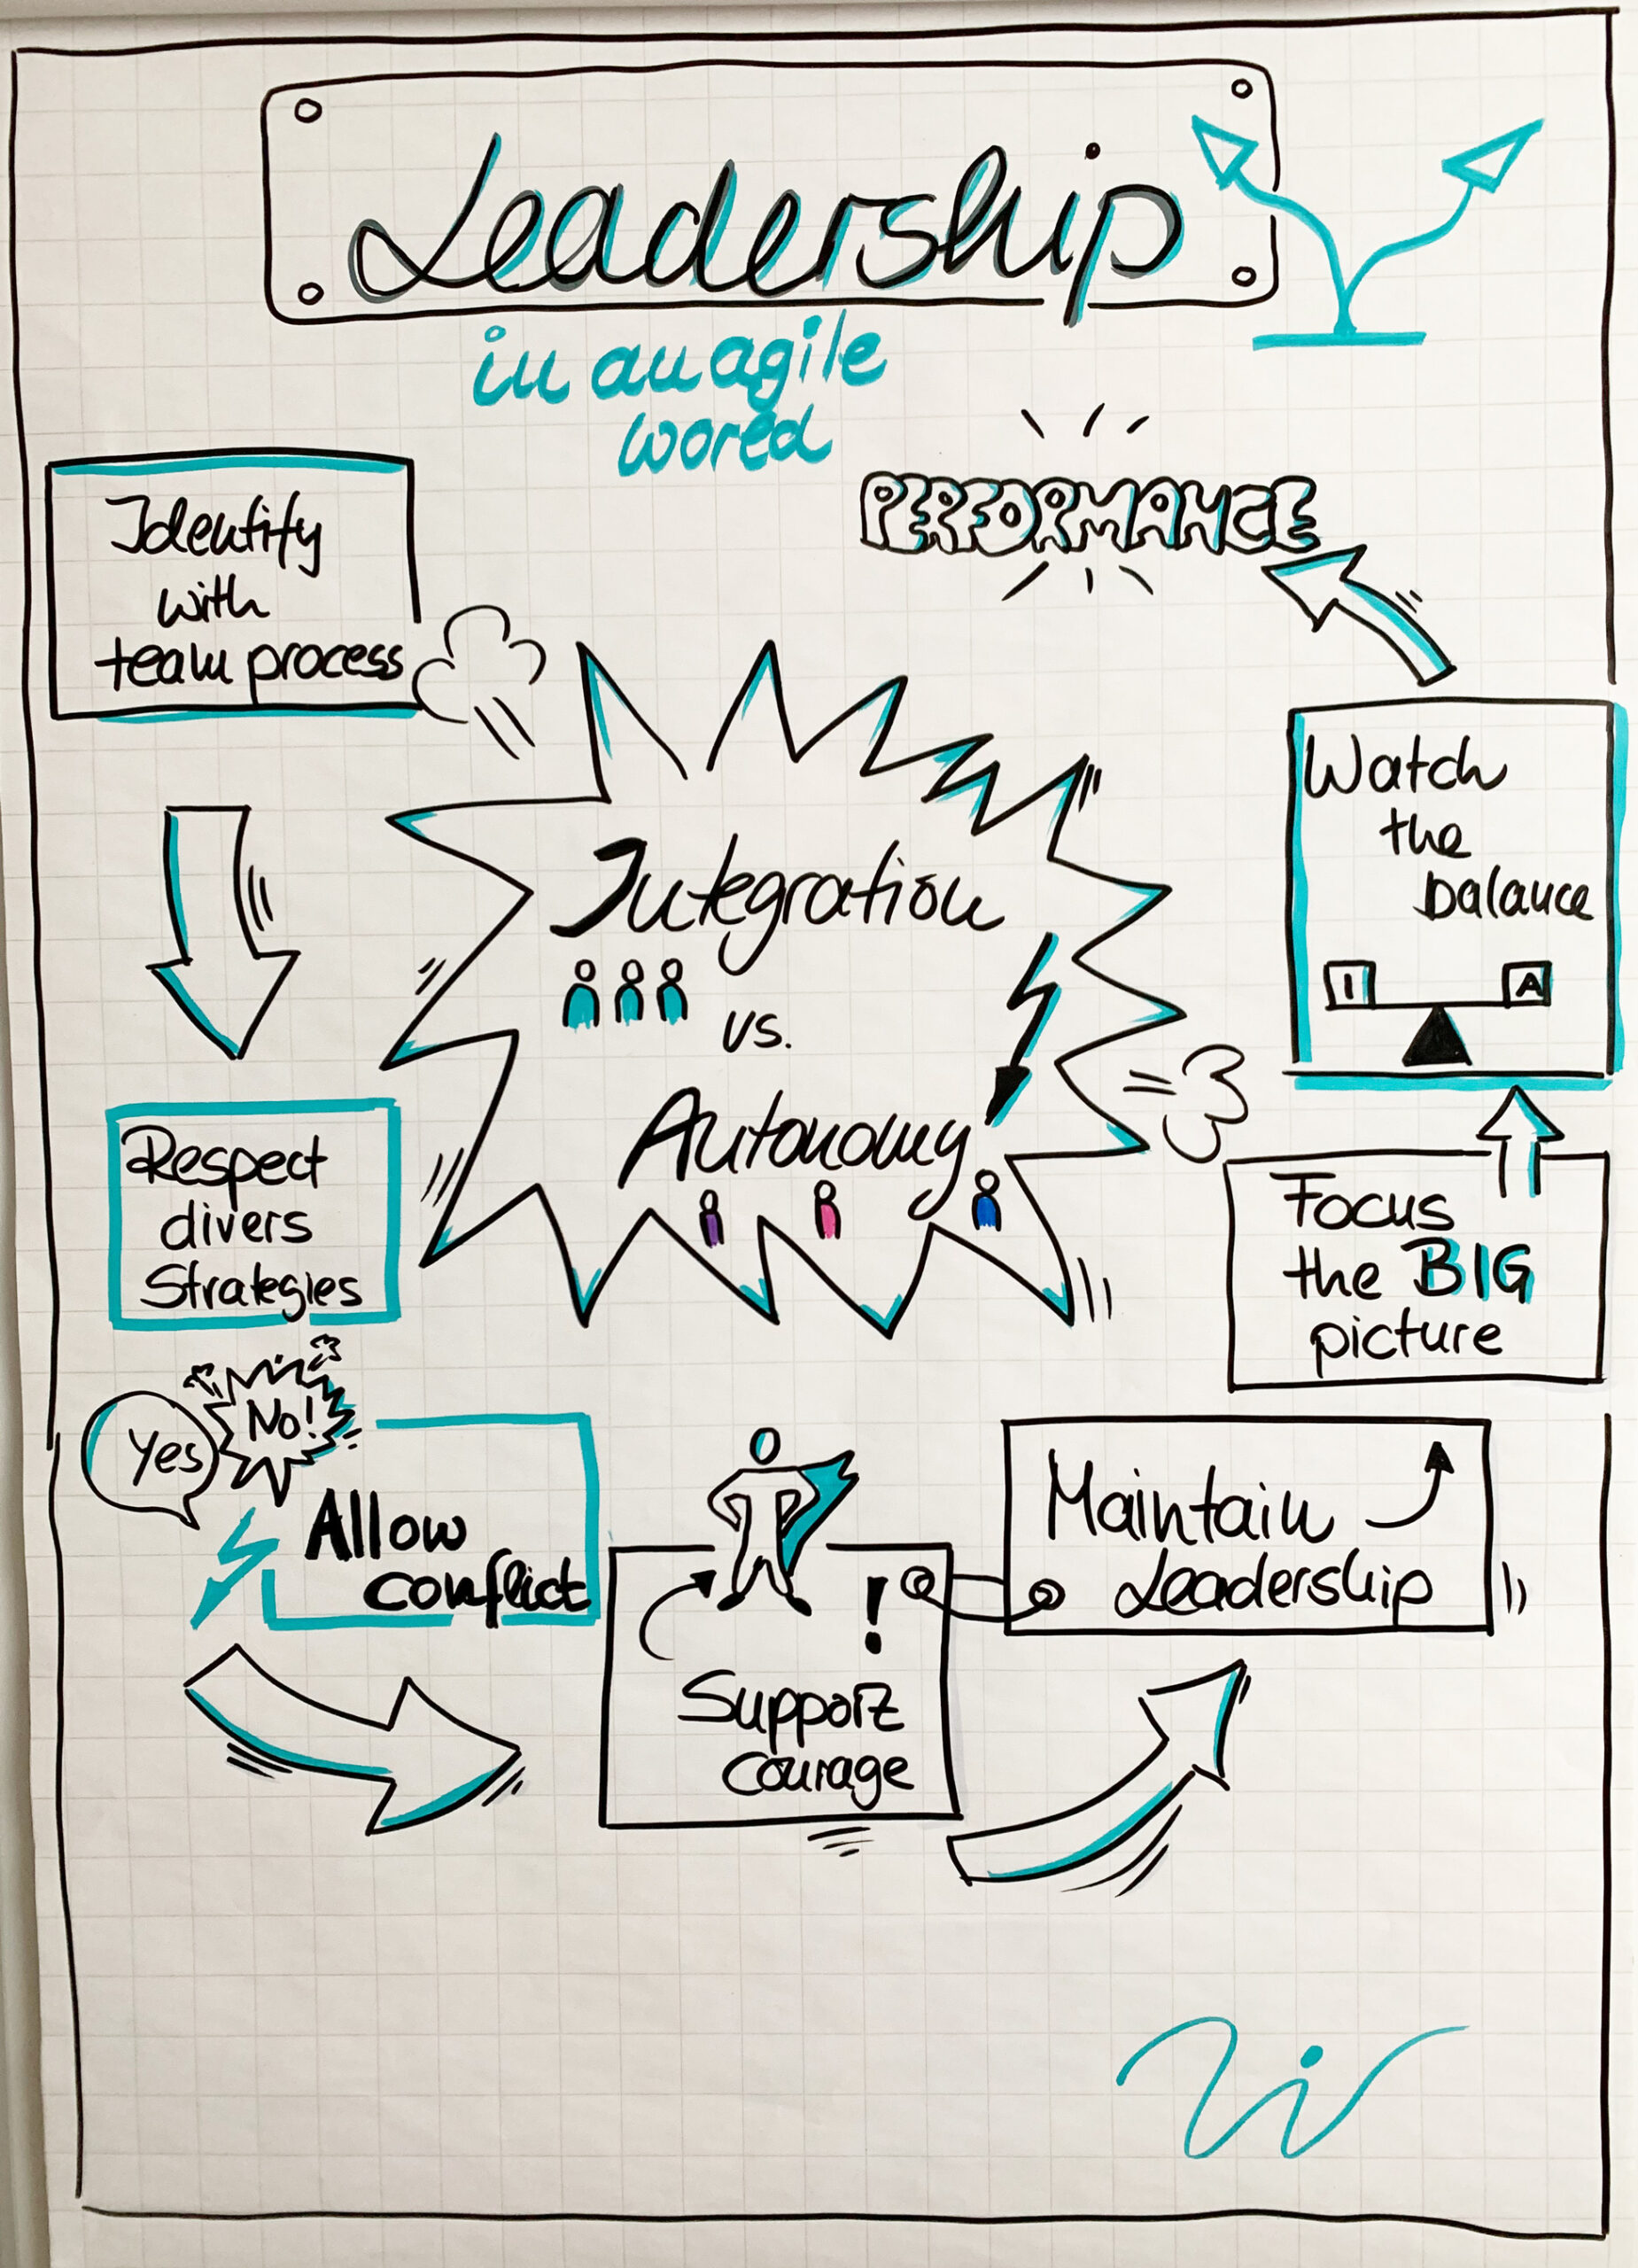 Leadership
in an agile
world
PERFORMANCE
Identify
with
team process
Integration
vs.
Autonomy
Respect
divers
Strategies
Yes
No!
Allow
conflict
!
Support
courage
Maintain
Leadership
Focus
the BIG
picture
Watch
the
balance
I A